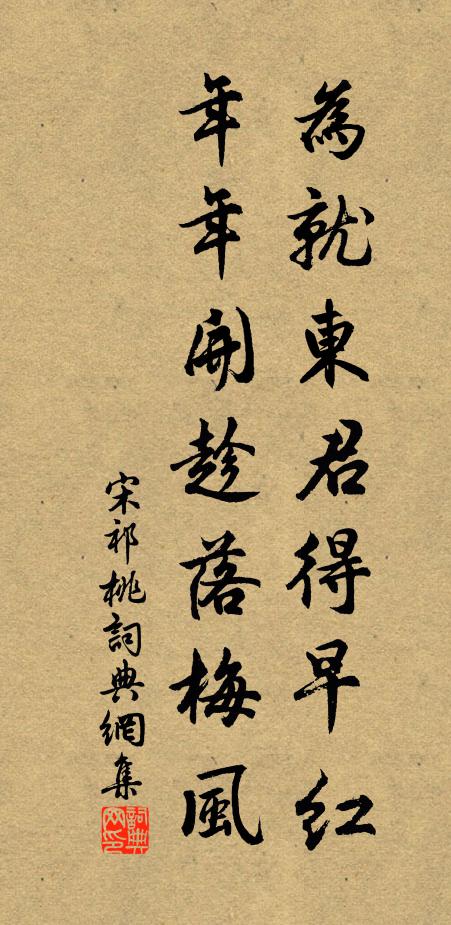 為就東君得早紅
年年開趁落梅風
宋祁桃詞典網集
詞典网印